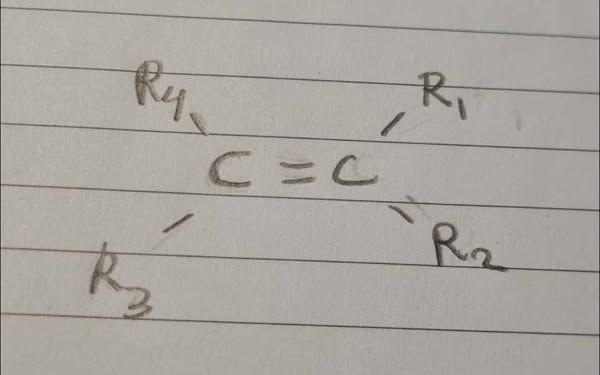 R4 R1
C = C
R3 R2